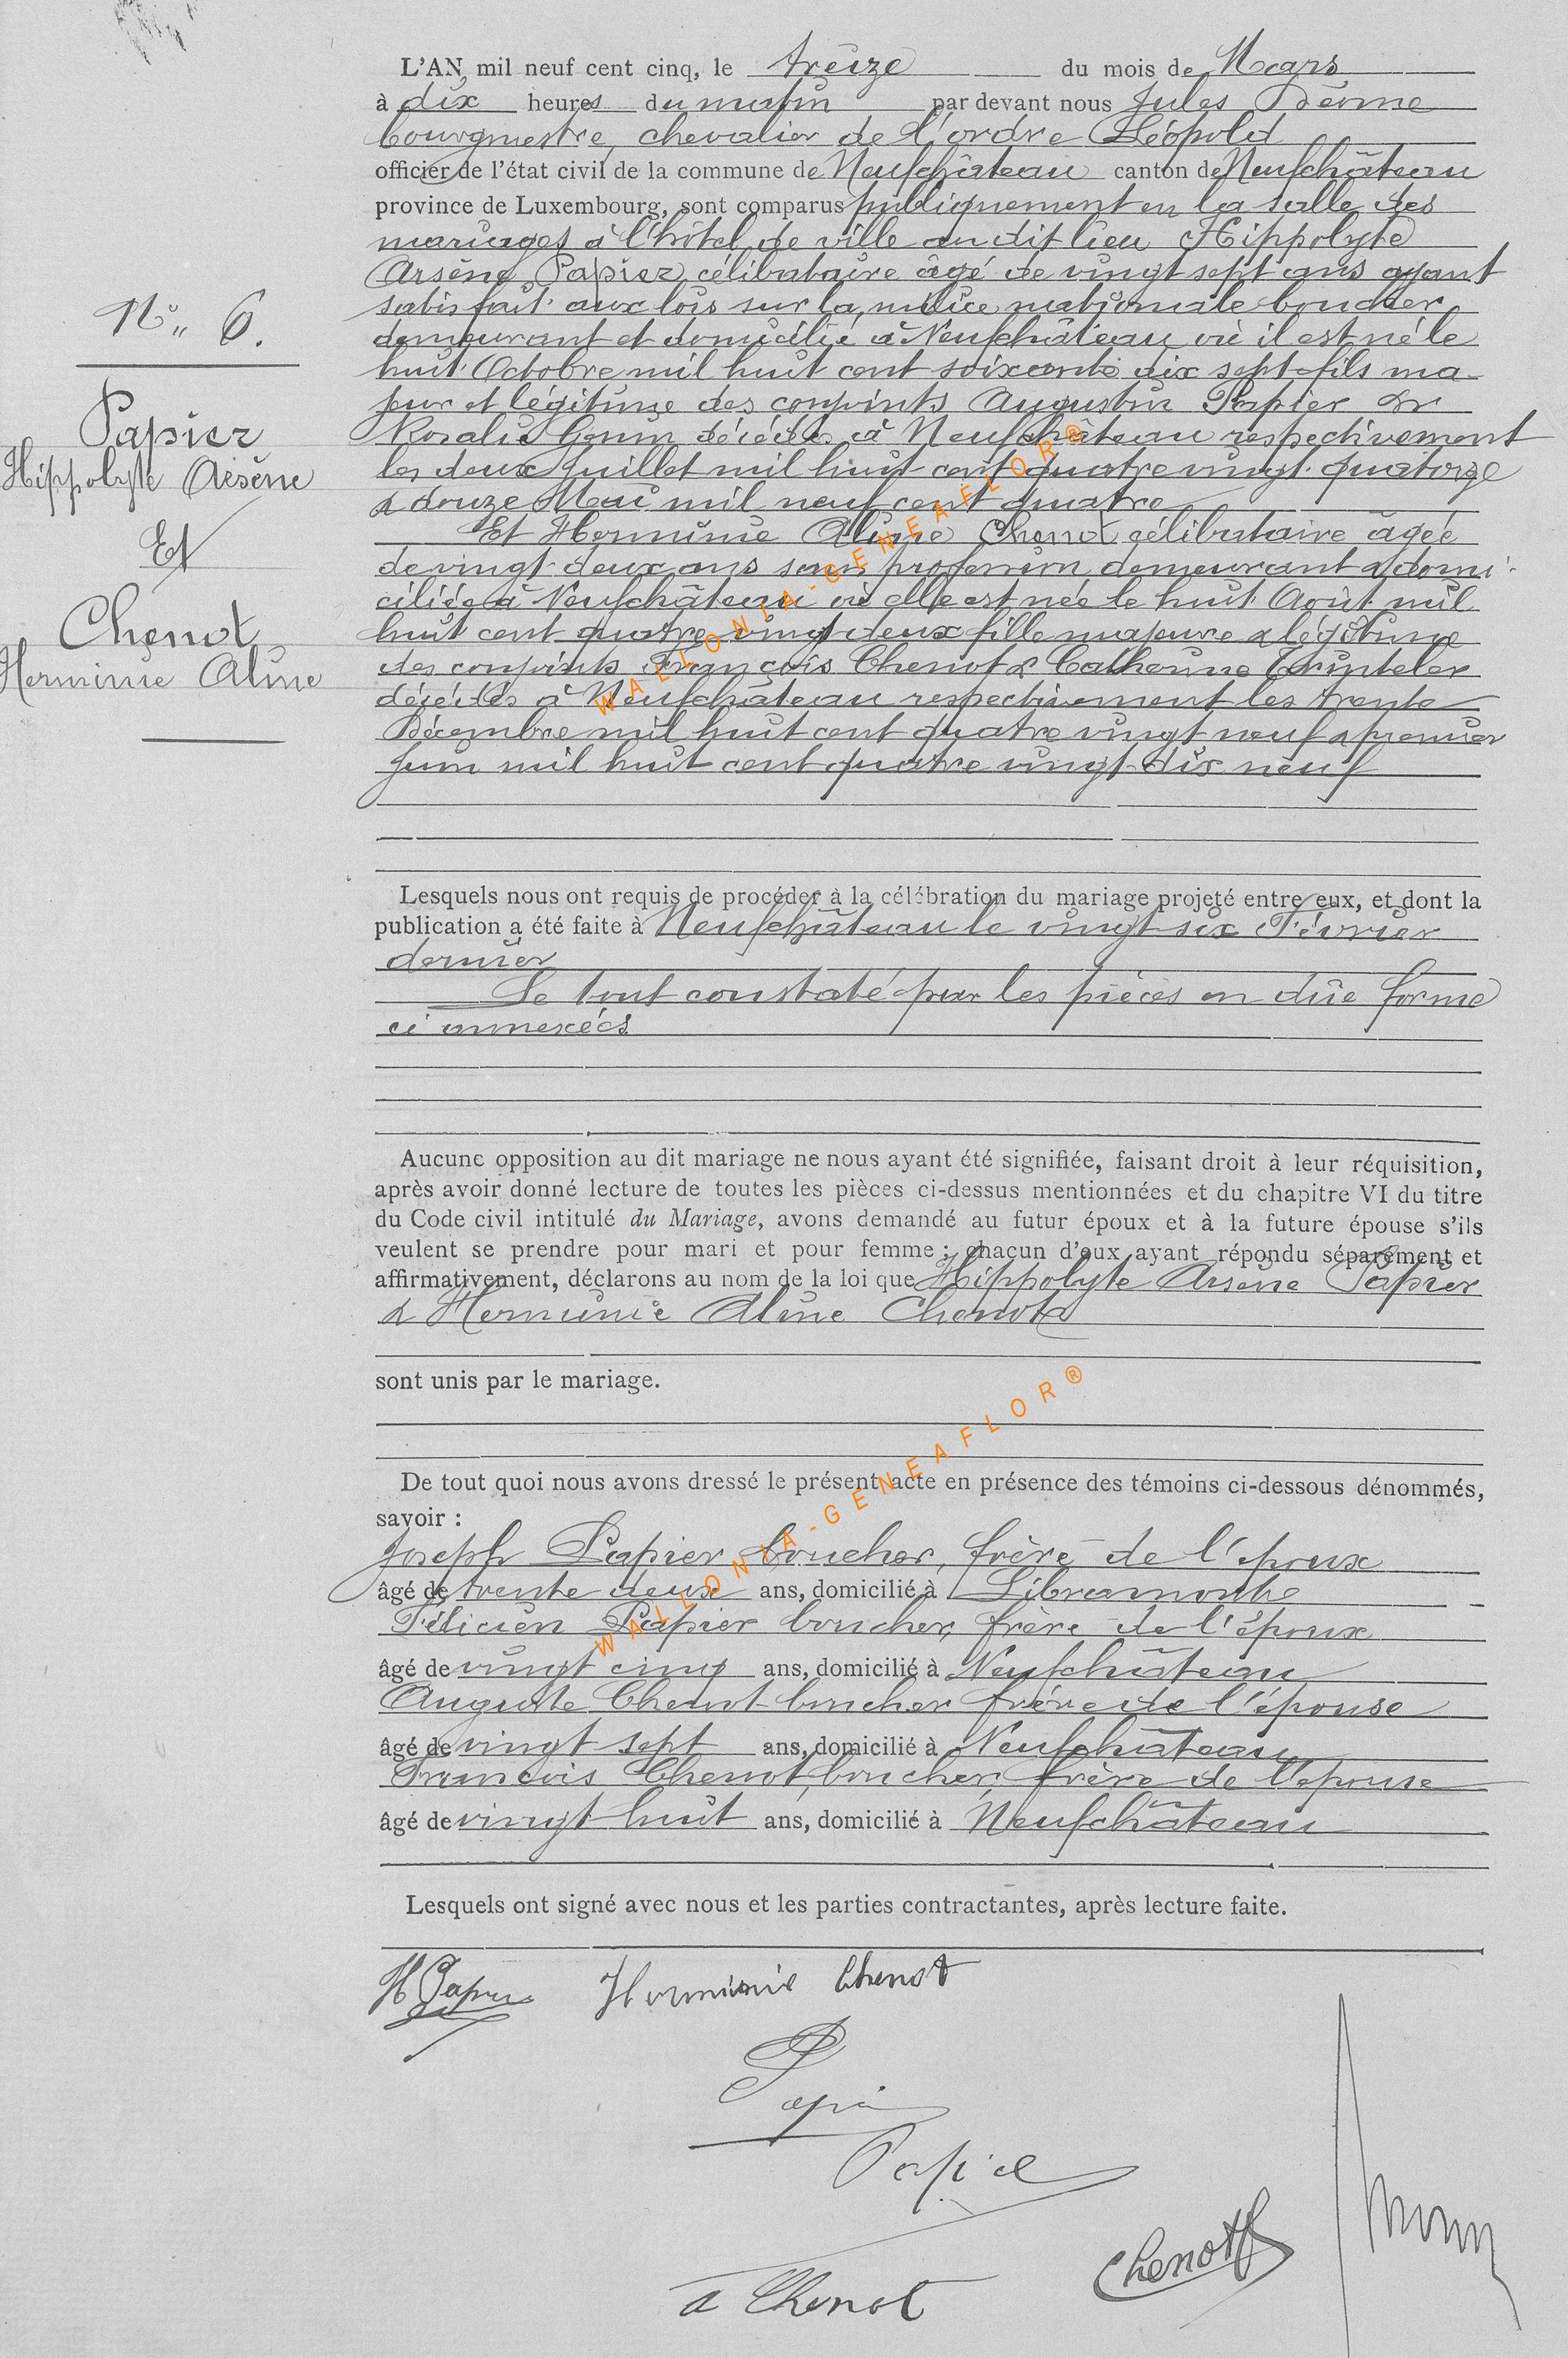 L'AN mil neuf cent cinq, le treize du mois de Mars
à dix heures du matin par devant nous Jules
bourgmestre, chevalier de l'ordre Léopold
officier de l'état civil de la commune de Neufchâteau canton de Neufchâteau
province de Luxembourg, sont comparus publiquement en la salle des
mariages à l'hôtel de ville audit lieu Hippolyte
Arsène Papier, célibataire âgé de vingt sept ans ayant
satisfait aux lois sur la milice nationale boucher
demeurant et domicilié à Neufchâteau où il est né le
huit Octobre mil huit cent soixante dix sept fils ma-
jeur et légitime des conjoints Augustin Papier &
Rosalie décédés à Neufchâteau respectivement
les deux Juillet mil huit cent quatre vingt quatorze
& douze Mai mil neuf cent quatre
Et Herminie Aline Chenot célibataire âgée
de vingt deux ans sans profession demeurant & domi-
ciliée à Neufchâteau où elle est née le huit Août mil
huit cent quatre vingt deux fille majeure & légitime
des conjoints François Chenot & Catherine
décédés à Neufchâteau respectivement les trente
Décembre mil huit cent quatre vingt neuf & premier
Juin mil huit cent quatre vingt dix neuf
N° 6.
Papier
Hippolyte Arsène
Et
Chenot
Herminie Aline
Lesquels nous ont requis de procéder à la célébration du mariage projeté entre eux, et dont la
publication a été faite à Neufchâteau le vingt six Février
dernier
Le tout constaté par les pièces en dûe forme
ci annexées
Aucune opposition au dit mariage ne nous ayant été signifiée, faisant droit à leur réquisition,
après avoir donné lecture de toutes les pièces ci-dessus mentionnées et du chapitre VI du titre
du Code civil intitulé du Mariage, avons demandé au futur époux et à la future épouse s'ils
veulent se prendre pour mari et pour femme ; chacun d'eux ayant répondu séparément et
affirmativement, déclarons au nom de la loi que Hippolyte Arsène Papier
& Herminie Aline Chenot
sont unis par le mariage.
De tout quoi nous avons dressé le présent acte en présence des témoins ci-dessous dénommés,
savoir :
Joseph Papier boucher, frère de l'époux
âgé de trente deux ans, domicilié à Libramont
Félicien Papier boucher, frère de l'époux
âgé de vingt cinq ans, domicilié à Neufchâteau
Auguste Chenot boucher frère de l'épouse
âgé de vingt sept ans, domicilié à Neufchâteau
François Chenot, boucher, frère de l'épouse
âgé de vingt huit ans, domicilié à Neufchâteau
Lesquels ont signé avec nous et les parties contractantes, après lecture faite.
H Papier Herminie Chenot
Papier
Papier
Chenot
a Chenot
WALLONIA-GENEAFLOR®
WALLONIA-GENEAFLOR®